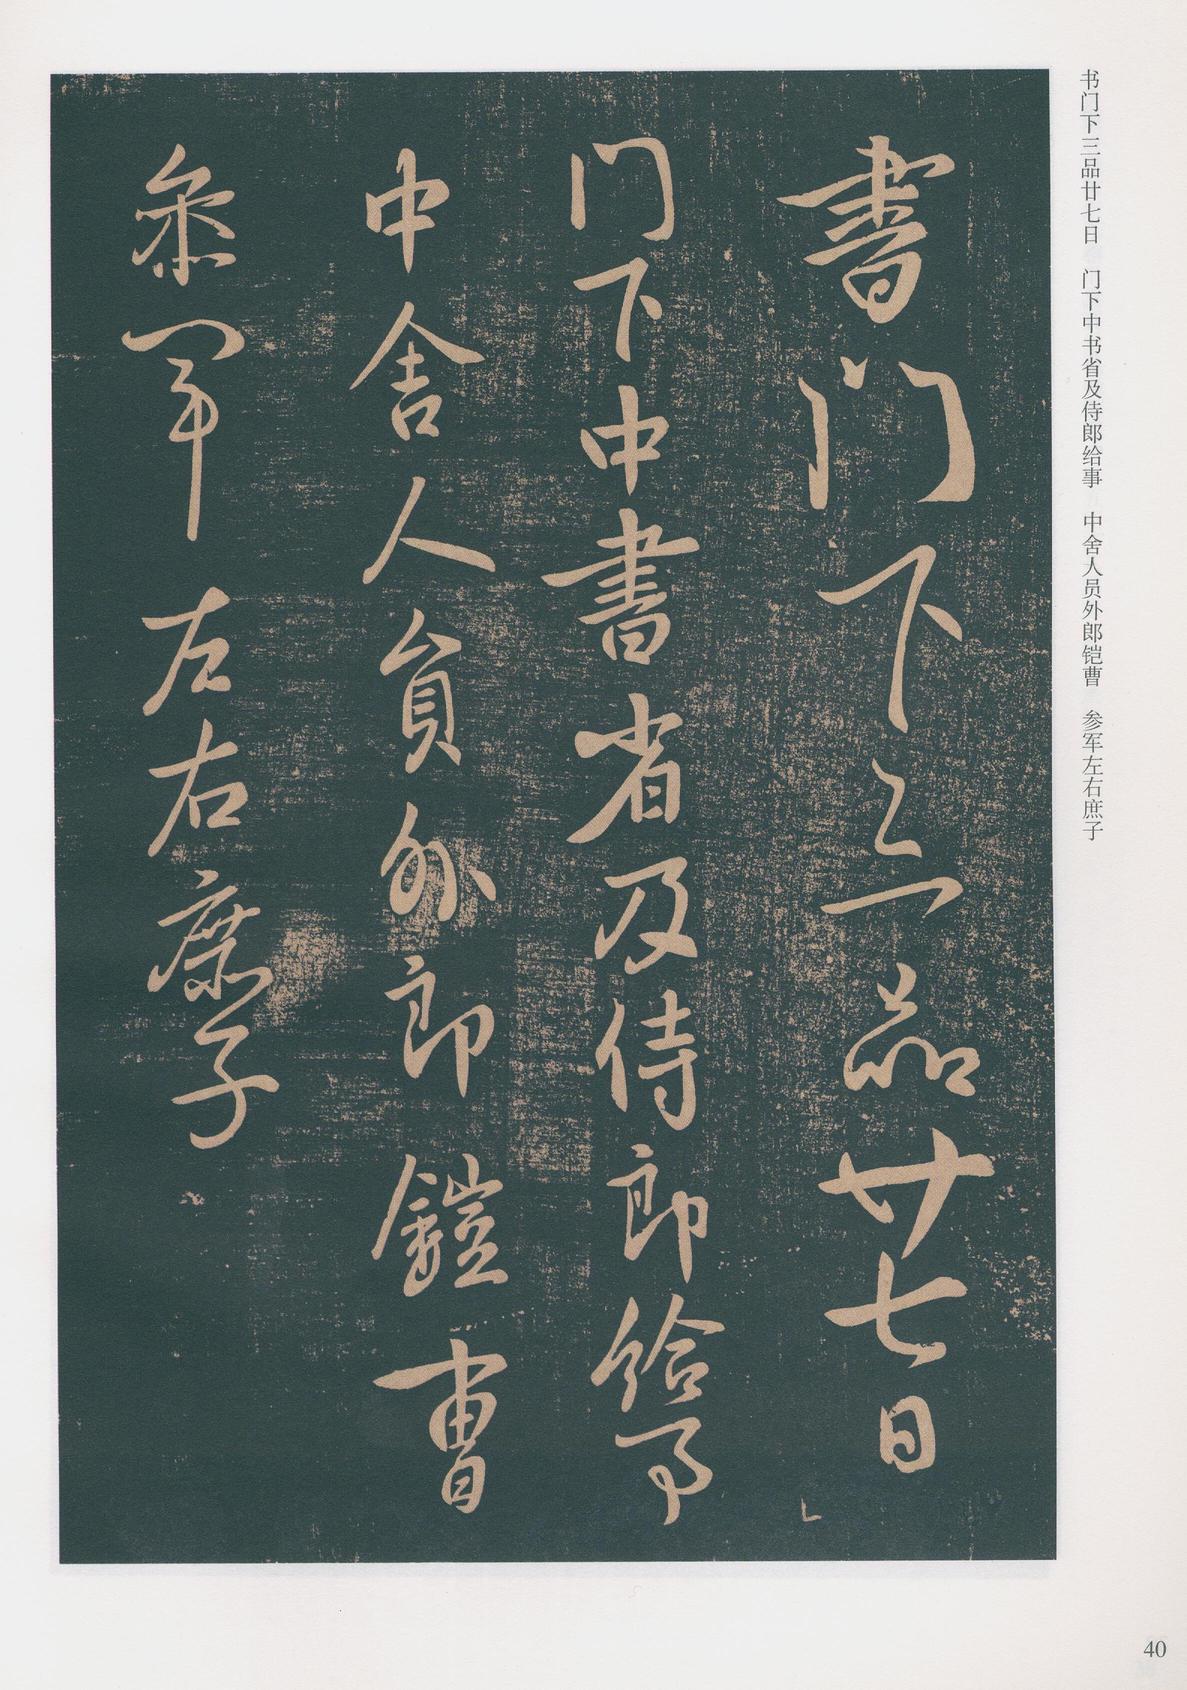 书门下三品廿七日　门下中书省及侍郎给事　中舍人员外郎铠曹　参军左右庶子
書门下三品廿七日
门下中書省及侍郎給事
中舍人員外郎鎧曹
叅軍左右庶子
40